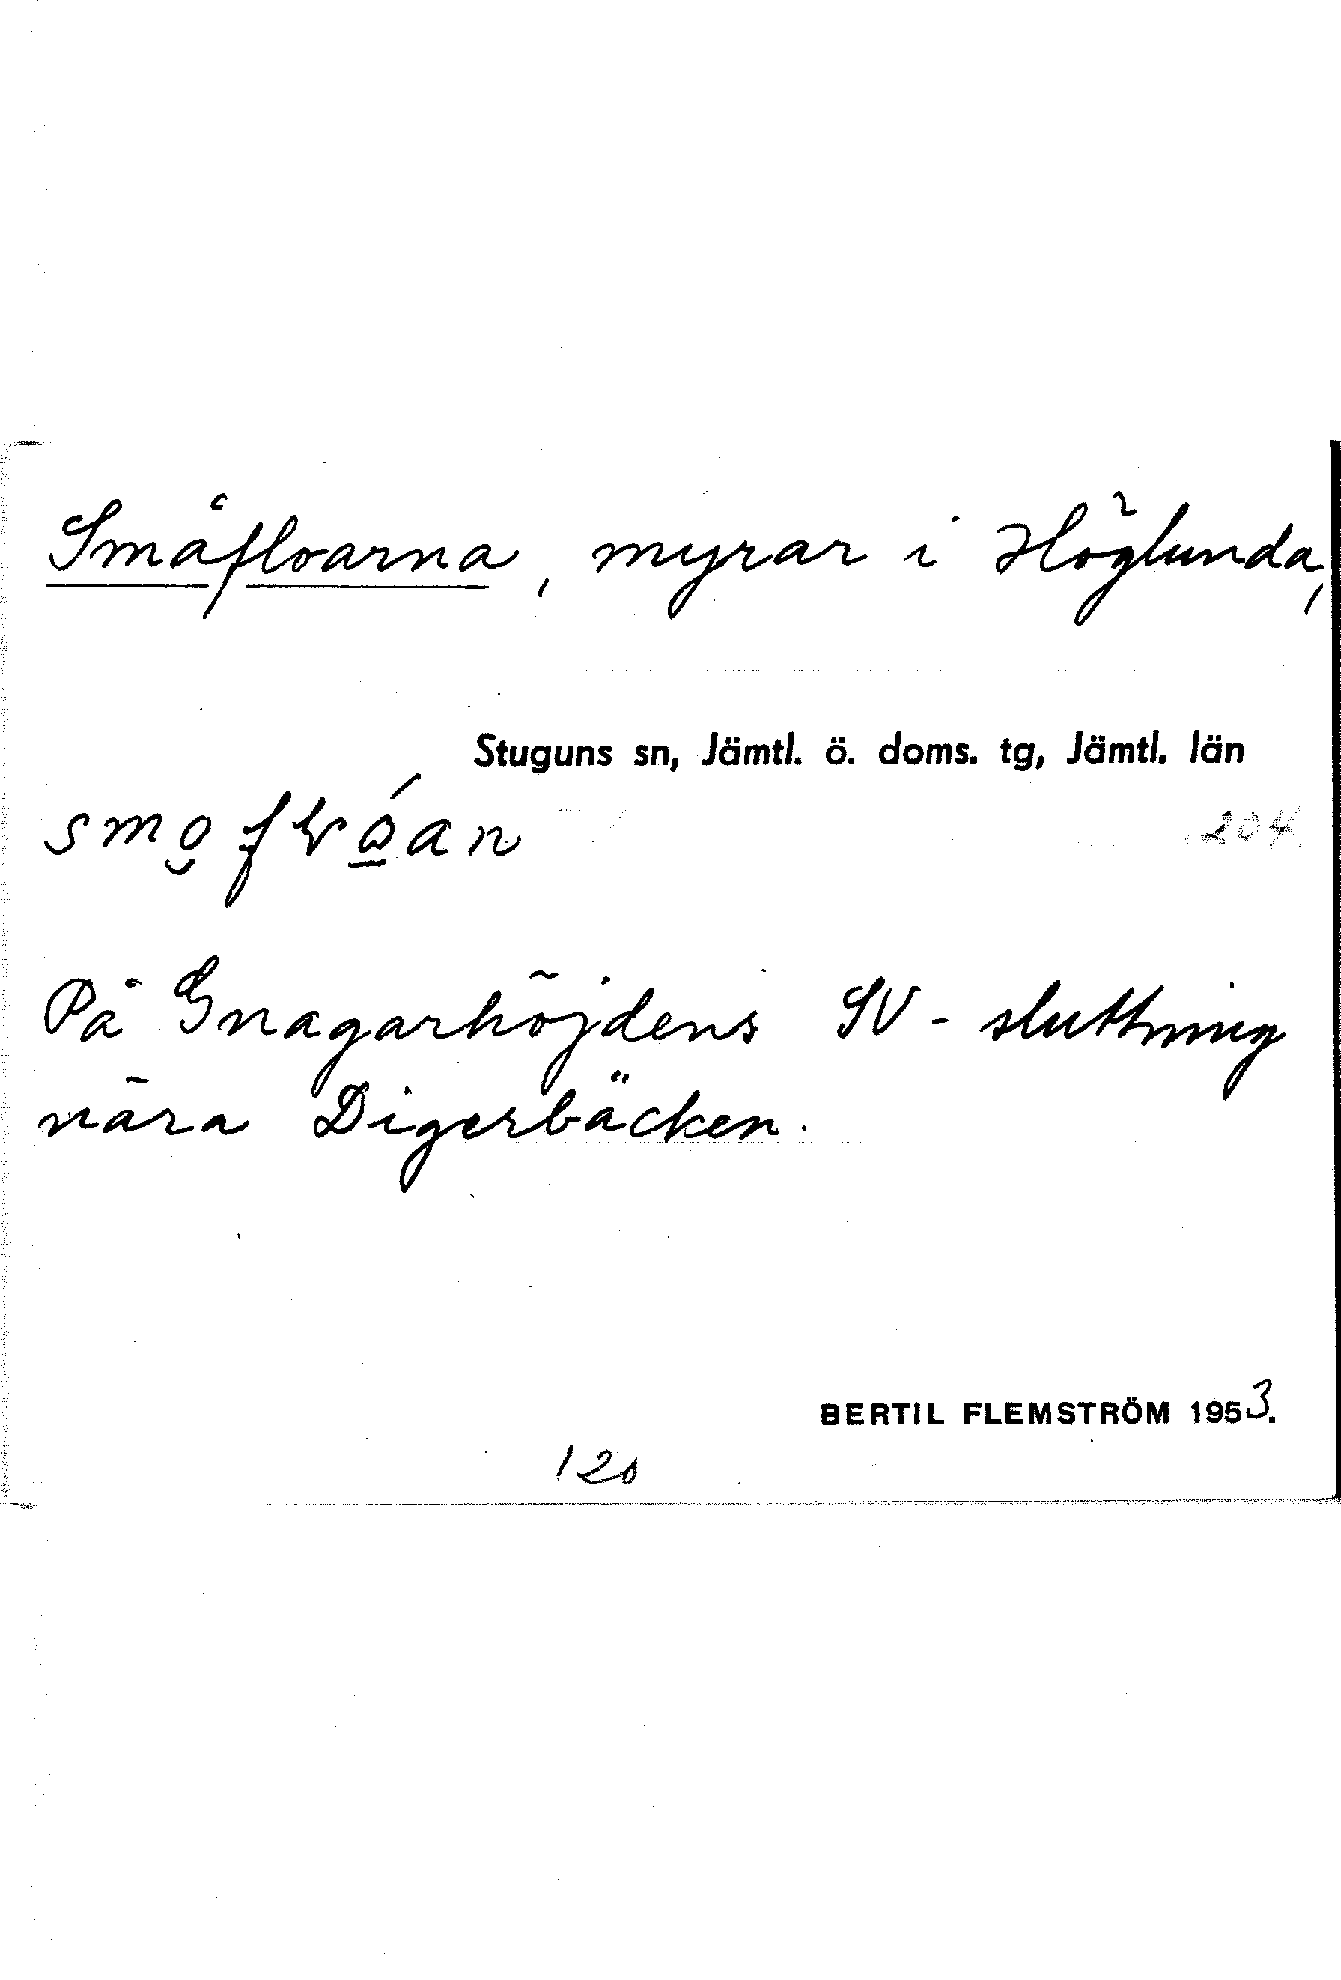 Småfloarna, myrar i Höglunda,
Stuguns sn, Jämtl. ö. doms. tg, Jämtl. län
204
På Gnagarhöjdens SV-sluttning
nära Digerbäcken.
BERTIL FLEMSTRÖM 1953.
120